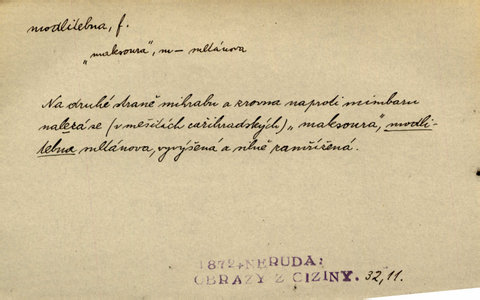 modlitebna, f.
„maksoura", m — sultánova
Na druhé straně mihrabu a zrovna naproti mimbaru
nalezá se (v mešitách cařihradských) „maksoura", modli-
tebna sultánova, vyvýšená a silně zamřížená.
1872, NERUDA:
OBRAZY Z CIZINY. 32, 11.